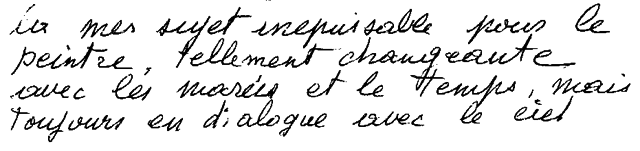 La mer sujet inepuisable pour le
peintre, tellement changeante
avec les marées et le temps, mais
toujours en dialogue avec le ciel